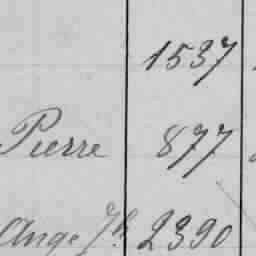 1537
Pierre 877
Ange Jh 2390